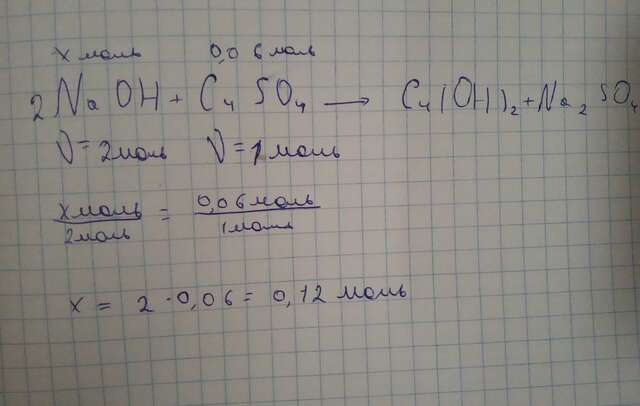 x моль 0,06 моль
2NaOH + CuSO₄ → Cu(OH)₂ + Na₂SO₄
ν = 2моль ν = 1моль
x моль/2моль = 0,06 моль/1моль
x = 2 · 0,06 = 0,12 моль